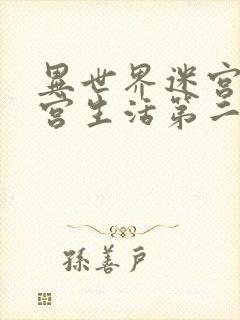 異世界迷宮
宮生活第二
孫善戶